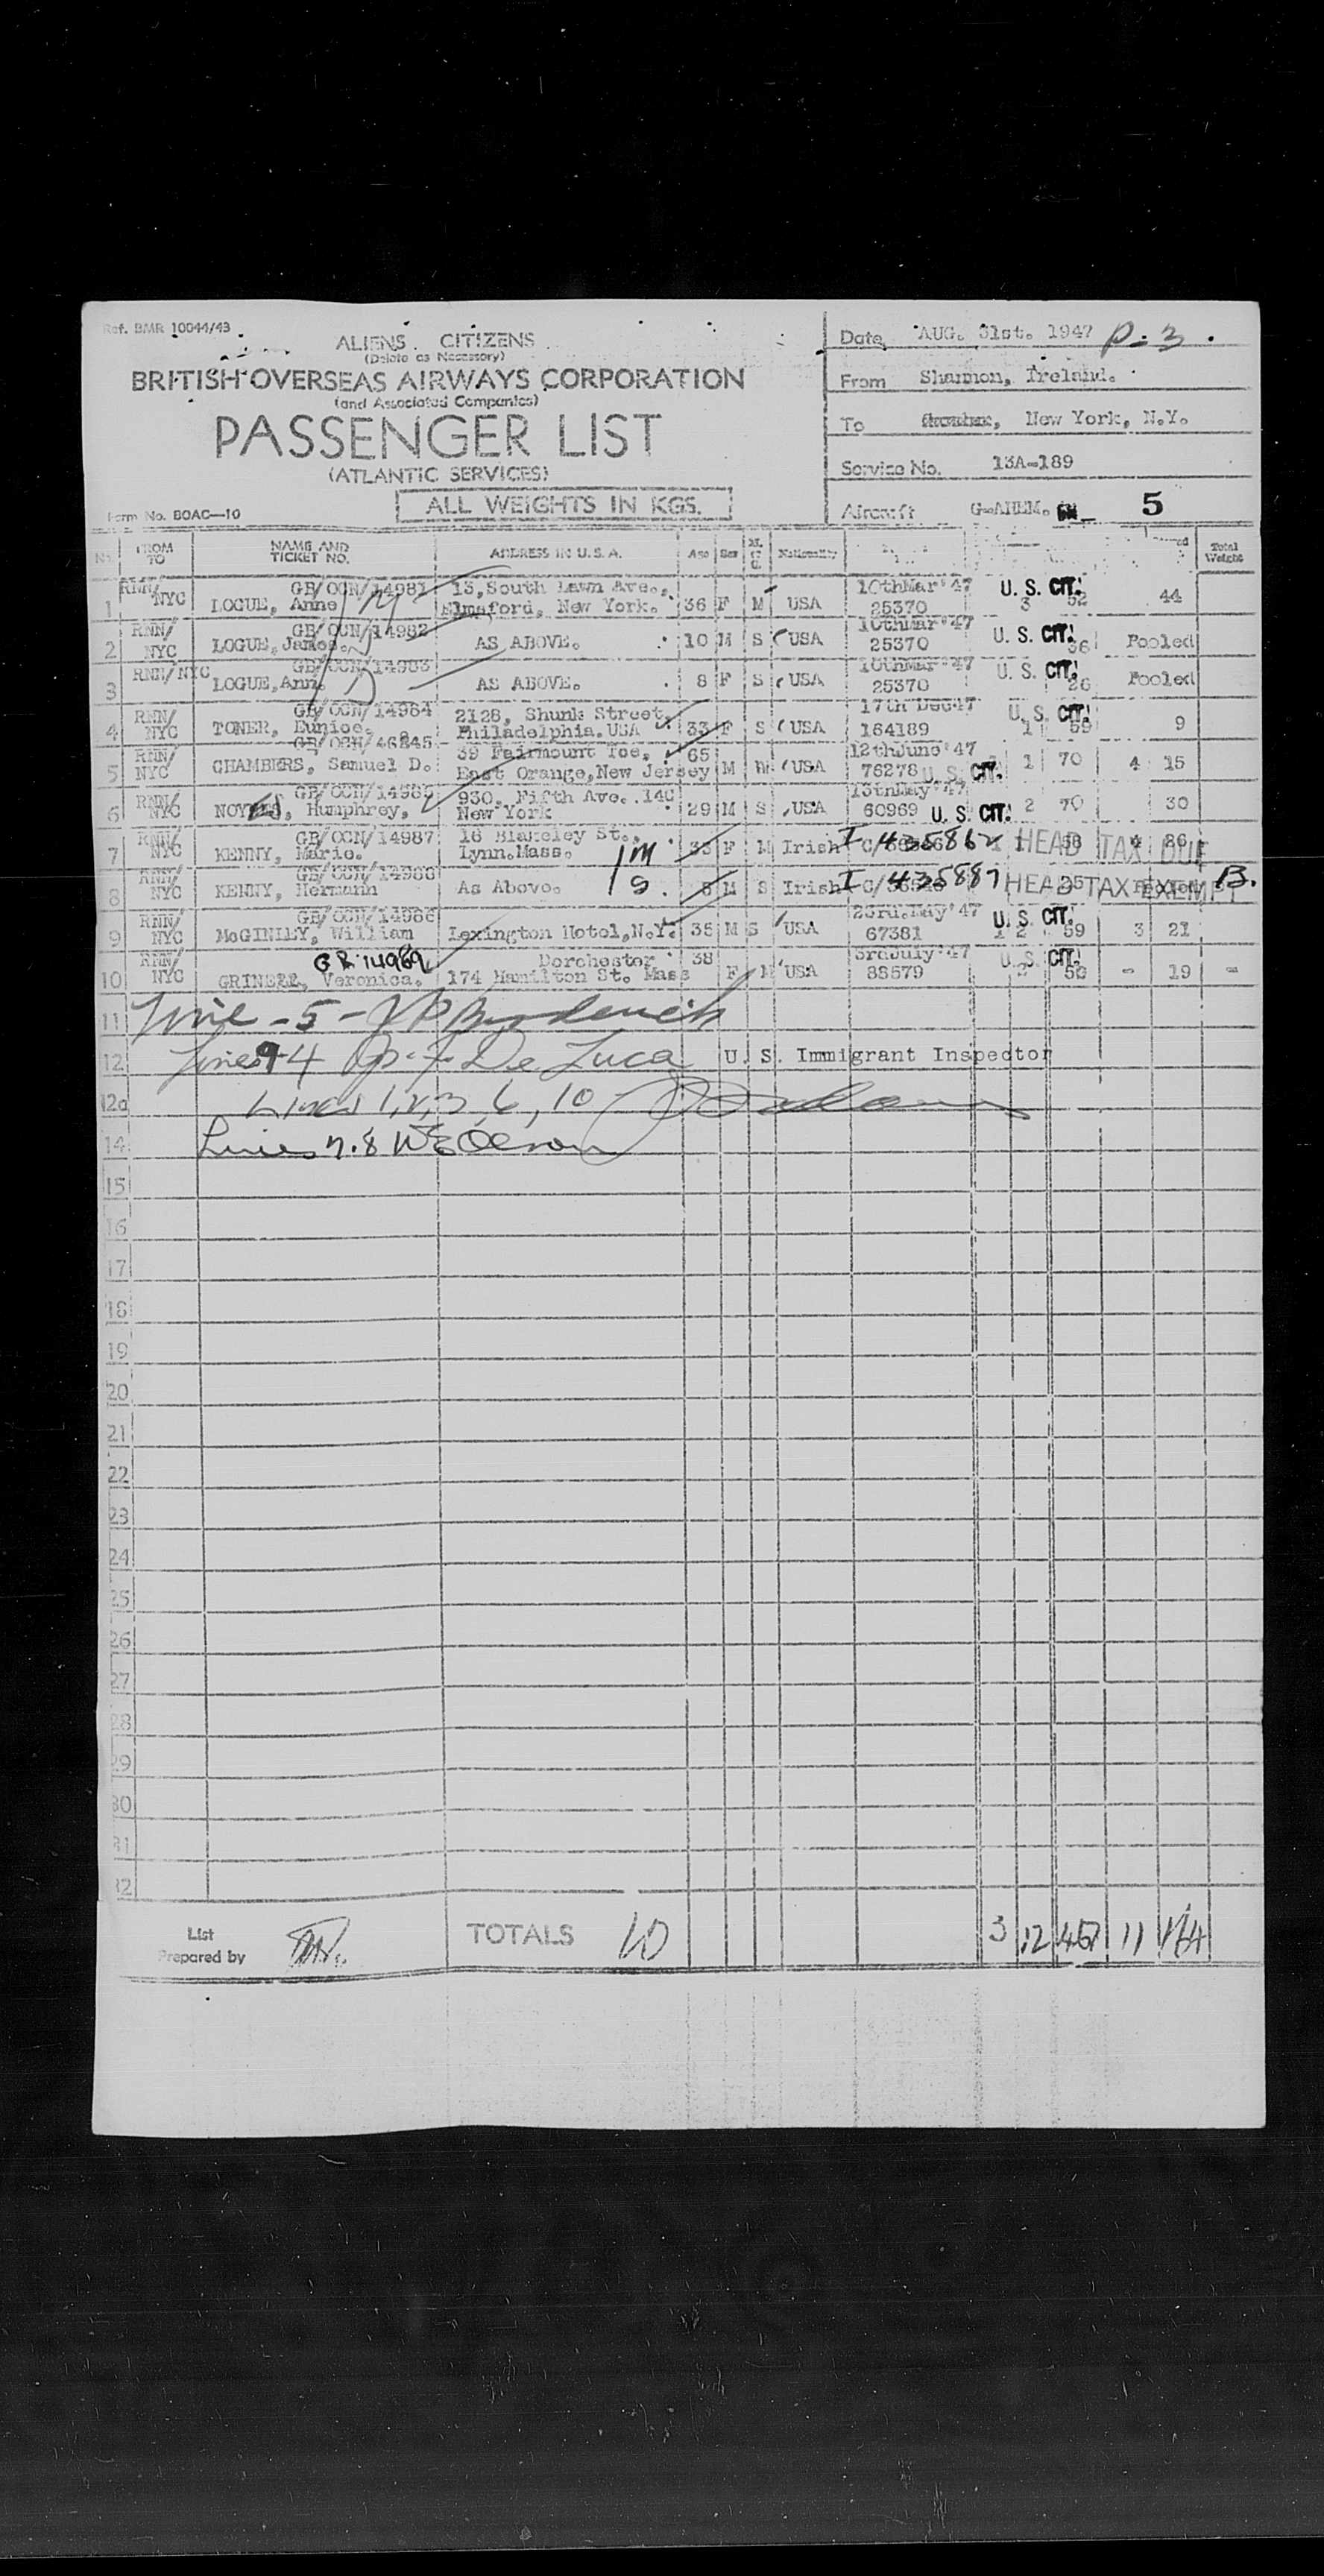 Ref. BMR 10044/43
ALIENS CITIZENS
(Delete as Necessary)
BRITISH OVERSEAS AIRWAYS CORPORATION
(and Associated Companies)
PASSENGER LIST
(ATLANTIC SERVICES)
ALL WEIGHTS IN KGS.
Form No. BOAC—10
Date AUG. 31st. 1947 P. 3.
From Shannon, Ireland.
To New York, N.Y.
Service No. 13A-189
Aircraft 5
No. FROM TO NAME AND TICKET NO. ADDRESS IN U.S.A. Age Sex Nationality Total Weight
RNN/ GB/OCN/14981 13, South Lawn Ave., 10thMar'47 U. S. CIT.
1 NYC LOGUE, Anne Elmsford, New York. 36 F M USA 25370 3 52 44
RNN/ GB/OCN/14982 10thMar'47 U. S. CIT.
2 NYC LOGUE, James. AS ABOVE. 10 M S USA 25370 36 Pooled
RNN/NYC GB/OCN/14983 10thMar'47 U. S. CIT.
3 LOGUE, Ann. AS ABOVE. 8 F S USA 25370 26 Pooled
RNN/ GB/OCN/14984 2128, Shunk Street, 17th Dec47 U. S. CIT.
4 NYC TONER, Eunice. Philadelphia. USA 33 F S USA 164189 1 59 9
RNN/ GB/OCN/46245 39 Fairmount Tce, 65 12thJune'47
5 NYC CHAMBERS, Samuel D. East Orange, New Jersey M USA 76278 U. S. CIT. 1 70 4 15
RNN/ GB/OCN/14985 930, Fifth Ave. 13thMay'47
6 NYC NOYES, Humphrey, New York 29 M S USA 60969 U. S. CIT. 2 70 30
RNN/ GB/OCN/14987 16 Blakeley St.,
7 NYC KENNY, Marie. Lynn. Mass. 1 m 33 F M Irish I 435862 HEAD TAX DUE
RNN/
8 NYC KENNY, Hermann As Above. 1 S. M S Irish I 435887 HEAD TAX EXEMPT B.
RNN/ GB/OCN/14986 23rd.May'47 U. S. CIT.
9 NYC McGINILY, William Lexington Hotel, N.Y. 35 M S USA 67381 2 59 3 21
RNN/ GB 14989 Dorchester 38 3rdJuly'47 U. S. CIT.
10 NYC Veronica. 174 Hamilton St. Mass F M USA 88579 - 19 -
11 Line - 5 -
12 Lines 9 4 De Luca U. S. Immigrant Inspector
12a Lines 1, 2, 3, 6, 10
14 Lines 7. 8 W E Olson
15
16
17
18
19
20
21
22
23
24
25
26
27
28
29
30
31
32
List Prepared by TOTALS 10 3 12 457 11